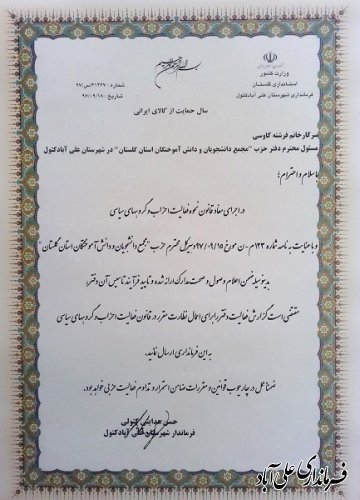 بسم الله الرحمن الرحیم
وزارت کشور
استانداری گلستان
فرمانداری شهرستان علی آبادکتول
تاریخ : ۹۷/۰۹/۱۸
سال حمایت از کالای ایرانی
سرکارخانم فرشته کاوسی
مسئول محترم دفتر حزب "مجمع دانشجویان و دانش آموختگان استان گلستان" در شهرستان علی آبادکتول
باسلام و احترام؛
در اجرای مفاد قانون نحوه فعالیت احزاب و گروههای سیاسی
و با عنایت به نامه شماره ۱۲۳م-ن مورخ ۹۷/۰۹/۱۵ دبیرکل محترم حزب "مجمع دانشجویان و دانش آموختگان استان گلستان"
بدینوسیله ضمن اعلام وصول و صحت مدارک ارائه شده و تایید فرآیند تاسیس آن دفتر؛
مقتضی است گزارش فعالیت دفتر را برای اعمال نظارت مقرر در قانون فعالیت احزاب و گروههای سیاسی
به این فرمانداری ارسال نمائید.
ضمنا عمل در چارچوب قوانین و مقررات ضامن استمرار و تداوم فعالیت حزبی خواهد بود.
حسن هدایتی کتولی
فرماندار شهرستان علی آبادکتول
فرمانداری علی آباد